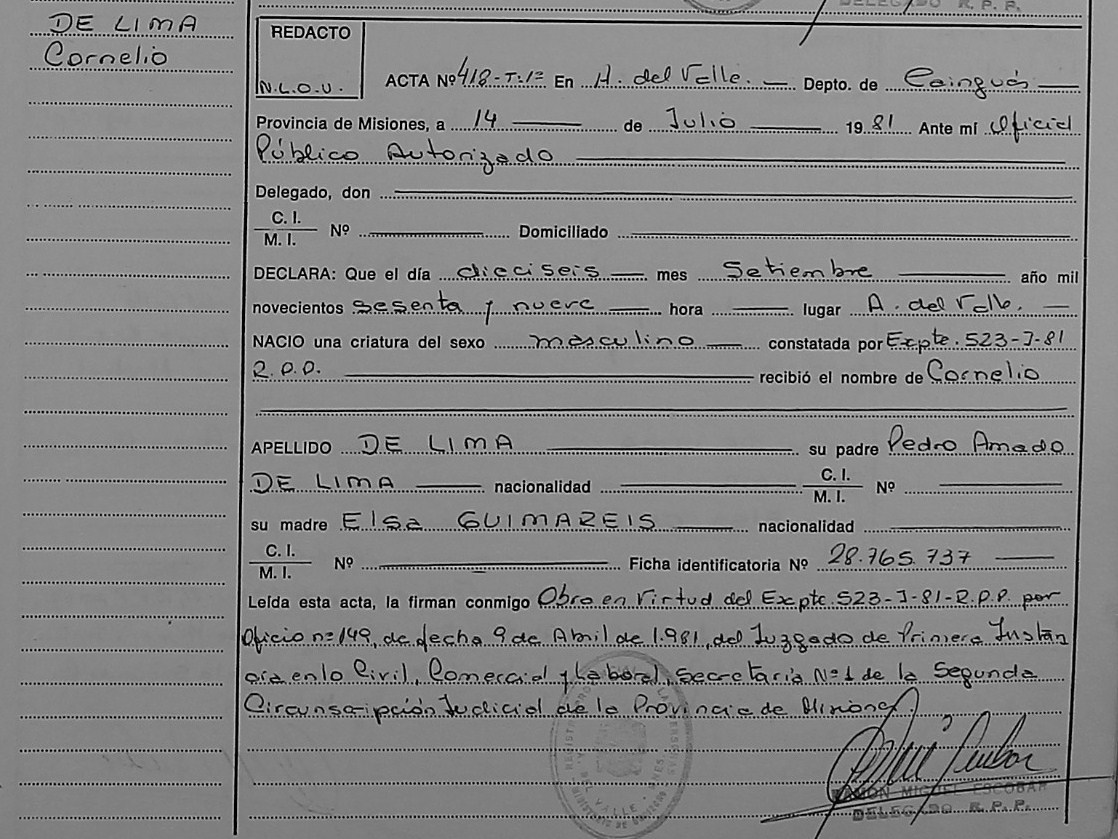 DELEGADO R. P. P.
DE LIMA
Cornelio
REDACTO
N.L.O.V.
ACTA Nº 418-T:1º En A. del Valle. Depto. de Cainguás
Provincia de Misiones, a 14 de Julio 19 81 Ante mí Oficial
Público Autorizado
Delegado, don
C. I.
M. I. Nº Domiciliado
DECLARA: Que el día dieciseis mes Setiembre año mil
novecientos sesenta y nueve hora lugar A. del Valle.
NACIO una criatura del sexo masculino constatada por Expte. 523-J-81
R.P.P. recibió el nombre de Cornelio
APELLIDO DE LIMA su padre Pedro Amado
DE LIMA nacionalidad C. I. M. I. Nº
su madre Elsa GUIMAREIS nacionalidad
C. I.
M. I. Nº Ficha identificatoria Nº 28.765.737
Leída esta acta, la firman conmigo Obra en Virtud del Expte. 523-J-81-R.P.P. por
Oficio nº 149, de fecha 9 de Abril de 1.981, del Juzgado de Primera Instan
cia en lo Civil, Comercial y Laboral, Secretaria Nº 1 de la Segunda
Circunscripción Judicial de la Provincia de Misiones.
RAMON MIGUEL ESCOBAR
DELEGADO R. P. P.